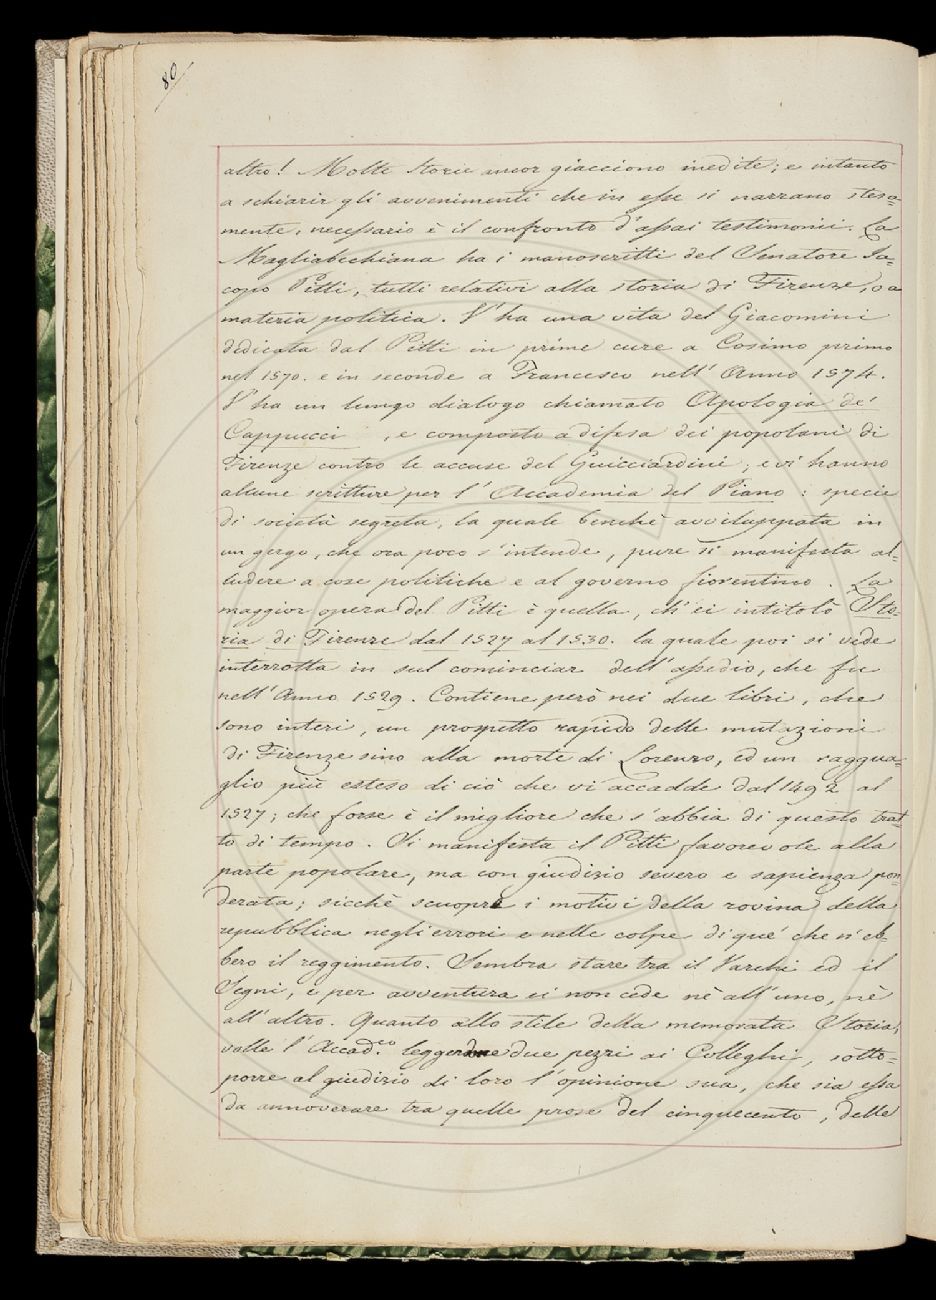 80
altro! Molte storie ancor giacciono inedite; e intanto
a schiarir gli avvenimenti che in esse si narrano stesa=
mente, necessario è il confronto d'assai testimonii. La
Magliabechiana ha i manoscritti del Senatore Ja=
copo Pitti, tutti relativi alla storia di Firenze, o a
materia politica. V'ha una vita del Giacomini
dedicata dal Pitti in prime cure a Cosimo primo
nel 1570. e in seconde a Francesco nell'Anno 1574.
V'ha un lungo dialogo chiamato Apologia de'
Cappucci, e composto a difesa dei popolani di
Firenze contro le accuse del Guicciardini; e vi hanno
alcune scritture per l'Accademia del Piano: specie
di società segreta, la quale benchè avviluppata in
un gergo, che ora poco s'intende, pure si manifesta al=
ludere a cose politiche e al governo fiorentino. La
maggior opera del Pitti è quella, ch'ei intitolò Sto=
ria di Firenze dal 1527 al 1530. la quale poi si vede
interrotta in sul cominciar dell'assedio, che fu
nell'Anno 1529. Contiene però nei due libri, che
sono interi, un prospetto rapido delle mutazioni
di Firenze sino alla morte di Lorenzo, ed un raggua=
glio più esteso di ciò che vi accadde dal 1492 al
1527; che forse è il migliore che s'abbia di questo trat=
to di tempo. Si manifesta il Pitti favorevole alla
parte popolare, ma con giudizio severo e sapienza pon=
derata; sicchè scuopre i motivi della rovina della
repubblica negli errori e nelle colpe di que' che n'eb=
bero il reggimento. Sembra stare tra il Varchi ed il
Segni, e per avventura ei non cede nè all'uno, nè
all'altro. Quanto allo stile della memorata Storia,
volle l'Accad.co leggerne due pezzi ai Colleghi, sotto=
porre al giudizio di loro l'opinione sua, che sia essa
da annoverare tra quelle prose del cinquecento, delle